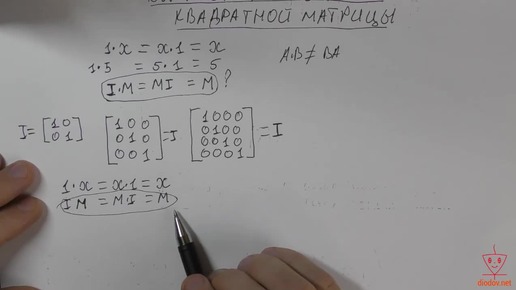 КВАДРАТНОЙ МАТРИЦЫ
1·x = x·1 = x
A·B ≠ BA
1·5 = 5·1 = 5
I·M = MI = M ?
I = [1 0
0 1]
[1 0 0
0 1 0
0 0 1] = I
[1 0 0 0
0 1 0 0
0 0 1 0
0 0 0 1] = I
1·x = x·1 = x
I M = M·I = M
diodov.net